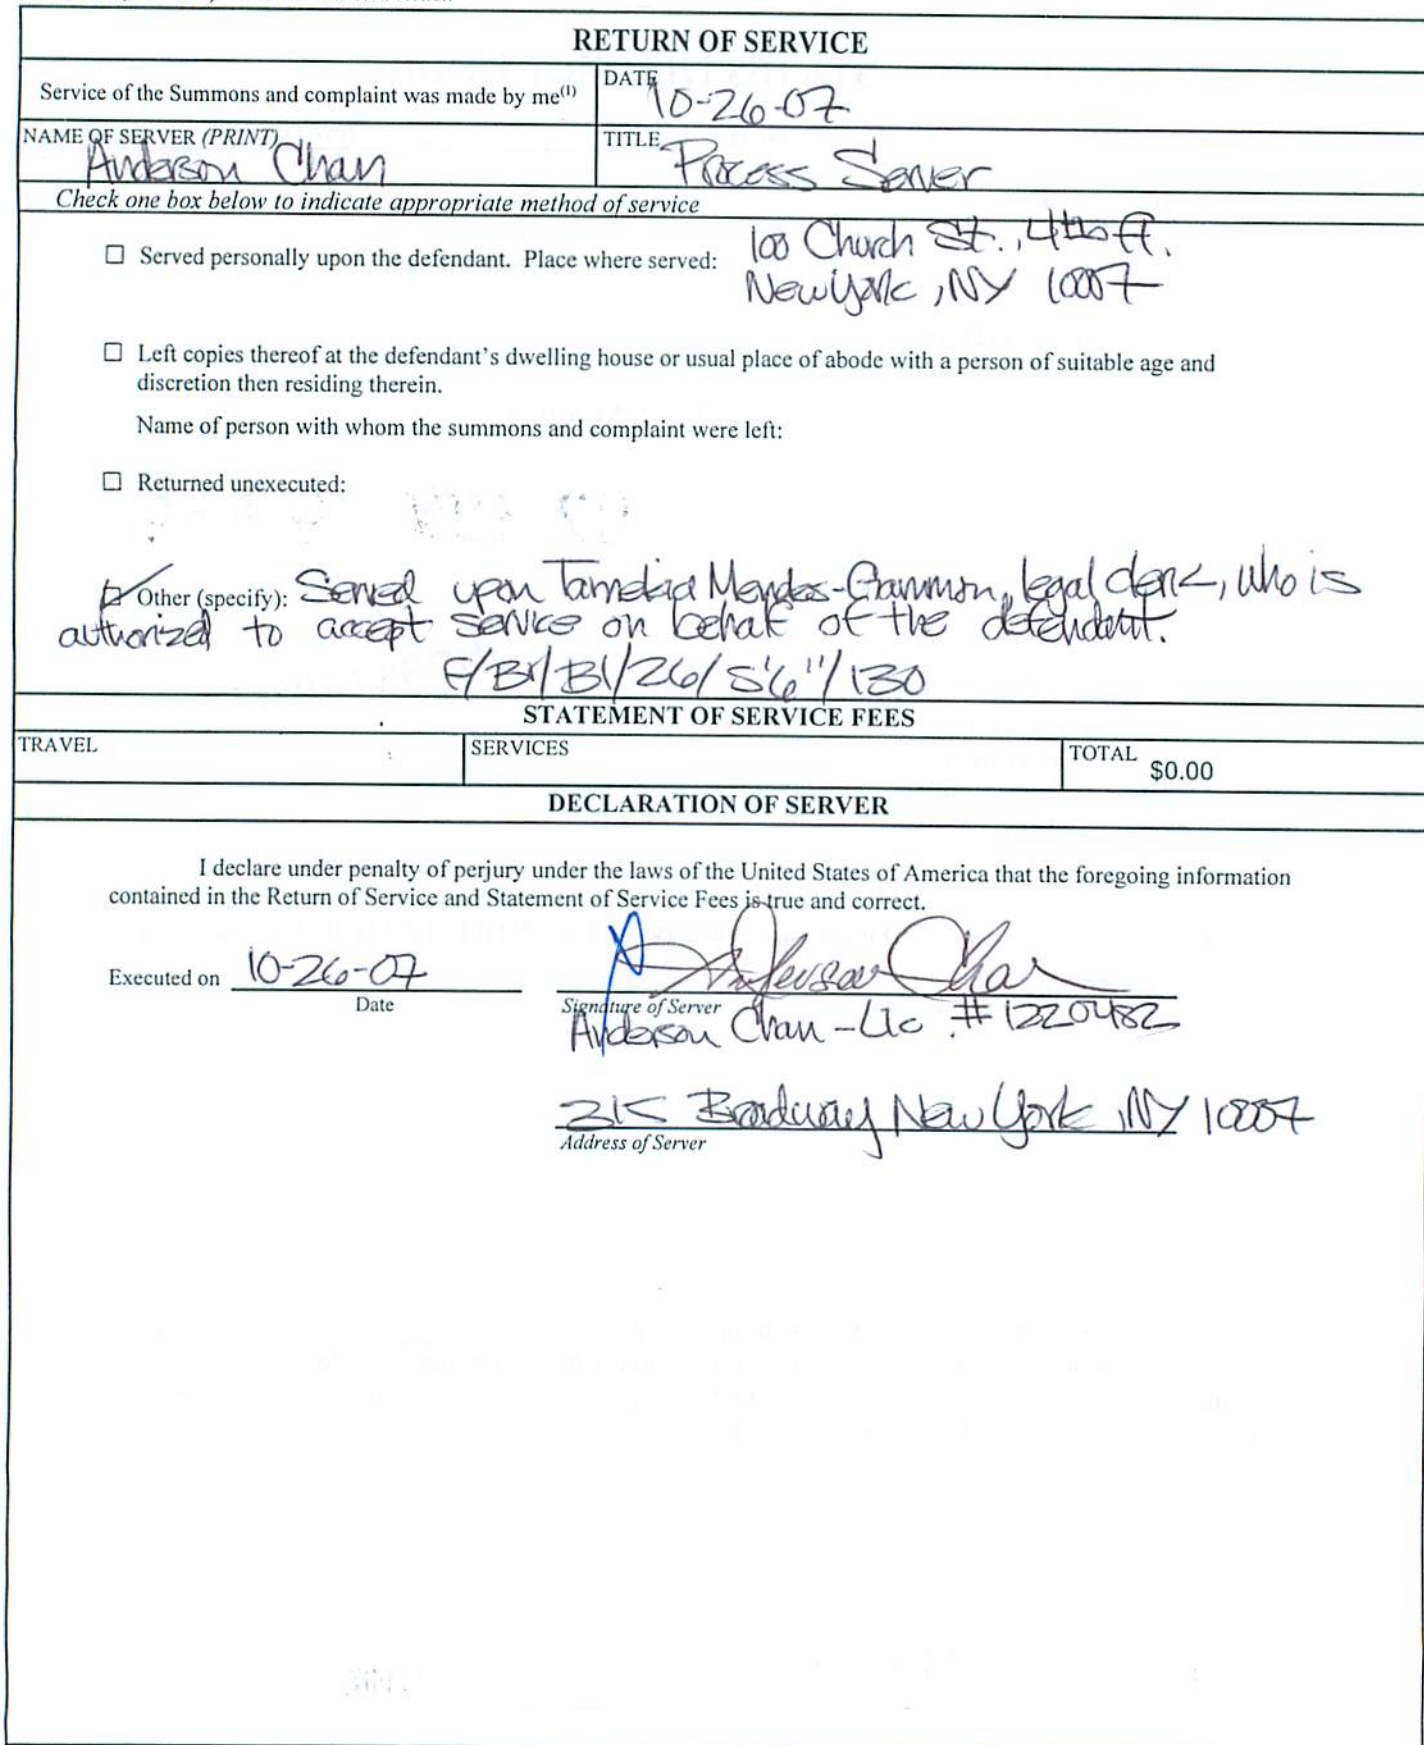 RETURN OF SERVICE
Service of the Summons and complaint was made by me(1)
DATE
10-26-07
NAME OF SERVER (PRINT)
Anderson Chan
TITLE
Process Server
Check one box below to indicate appropriate method of service
☐ Served personally upon the defendant. Place where served: 100 Church St., 4th fl.
New York, NY 10007
☐ Left copies thereof at the defendant's dwelling house or usual place of abode with a person of suitable age and
discretion then residing therein.
Name of person with whom the summons and complaint were left:
☐ Returned unexecuted:
☑ Other (specify): Served upon Tamekia Mendes-Gammon, legal clerk, who is
authorized to accept service on behalf of the defendant.
F/Br/Bl/26/5'6"/130
STATEMENT OF SERVICE FEES
TRAVEL
SERVICES
TOTAL
$0.00
DECLARATION OF SERVER
I declare under penalty of perjury under the laws of the United States of America that the foregoing information
contained in the Return of Service and Statement of Service Fees is true and correct.
Executed on 10-26-07
Date
Anderson Chan
Signature of Server
Anderson Chan - Lic # 1220482
315 Broadway New York, NY 10007
Address of Server